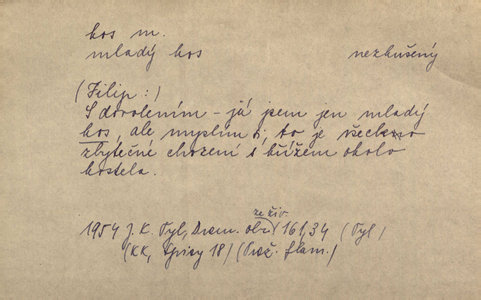 kos m.
mladý kos nezkušený
(Filip:)
S dovolením – já jsem jen mladý
kos, ale myslím si, to je všecko
zbytečné chození s křížem okolo
kostela.
ze živ.
1954 J. K. Tyl, Dram. obr. 161, 34 (Tyl)
(KK, Spisy 18) (Praž. flam.)